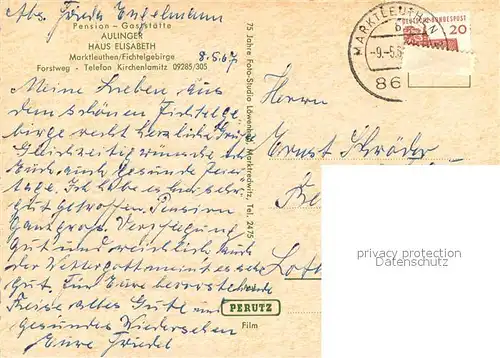 Abs. Frieda Engelmann
Pension - Gaststätte
AULINGER
HAUS ELISABETH
Marktleuthen/Fichtelgebirge
Forstweg - Telefon Kirchenlamitz 09285/305
8.5.67
Meine Lieben aus
dem schönen Fichtelge
birge recht herzliche Grüße
Gleichzeitig wünsche
Euch auch gesunde Feier
tage. Ich habe es sehr
gut getroffen. Pension
ganz groß. Verpflegung
gut und reichlich auch
der Wettergott meint es sehr
gut. Für Eure bevorstehende
Reise alles Gute
gesundes Wiedersehen
Eure Friedel
75 Jahre Foto-Studio Löwenhag, Marktredwitz, Tel. 2475
MARKTLEUTHEN
-9.-5.6
86
DEUTSCHE BUNDESPOST
20
Herrn
Ernst Schröder
PERUTZ
Film
privacy protection
Datenschutz